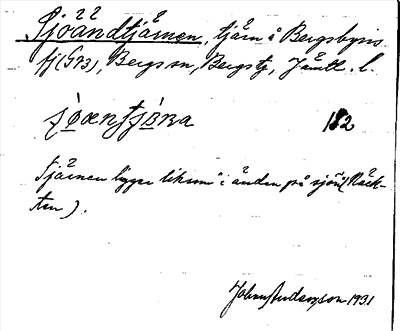 Sjöändtjärnen, tjärn å Bergsbyns
fj (573), Bergs sn, Bergs tg, Jämtl. l.
sjøæntjøna 182
Tjärnen ligger liksom i änden på sjön (Näck-
ten).
John Andersson 1931